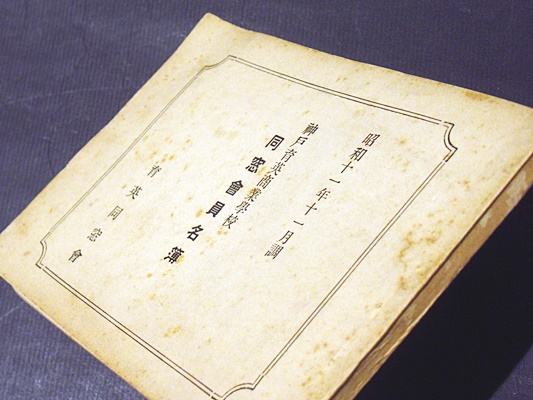 昭和十一年十一月調
神戸育英商業學校
同窓會員名簿
育英同窓會